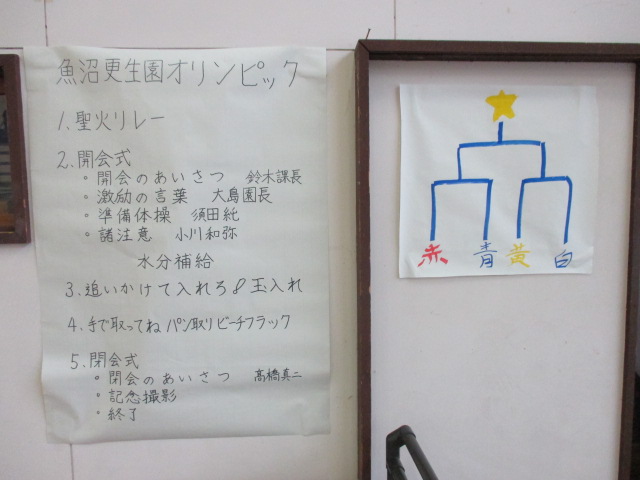 魚沼更生園オリンピック
1. 聖火リレー
2. 開会式
・開会のあいさつ 鈴木課長
・激励の言葉 大島園長
・準備体操 須田純
・諸注意 小川和弥
水分補給
3. 追いかけて入れろ♪玉入れ
4. 手で取ってね パン取りビーチフラック
5. 閉会式
・閉会のあいさつ 高橋真二
・記念撮影
・終了
赤 青 黄 白